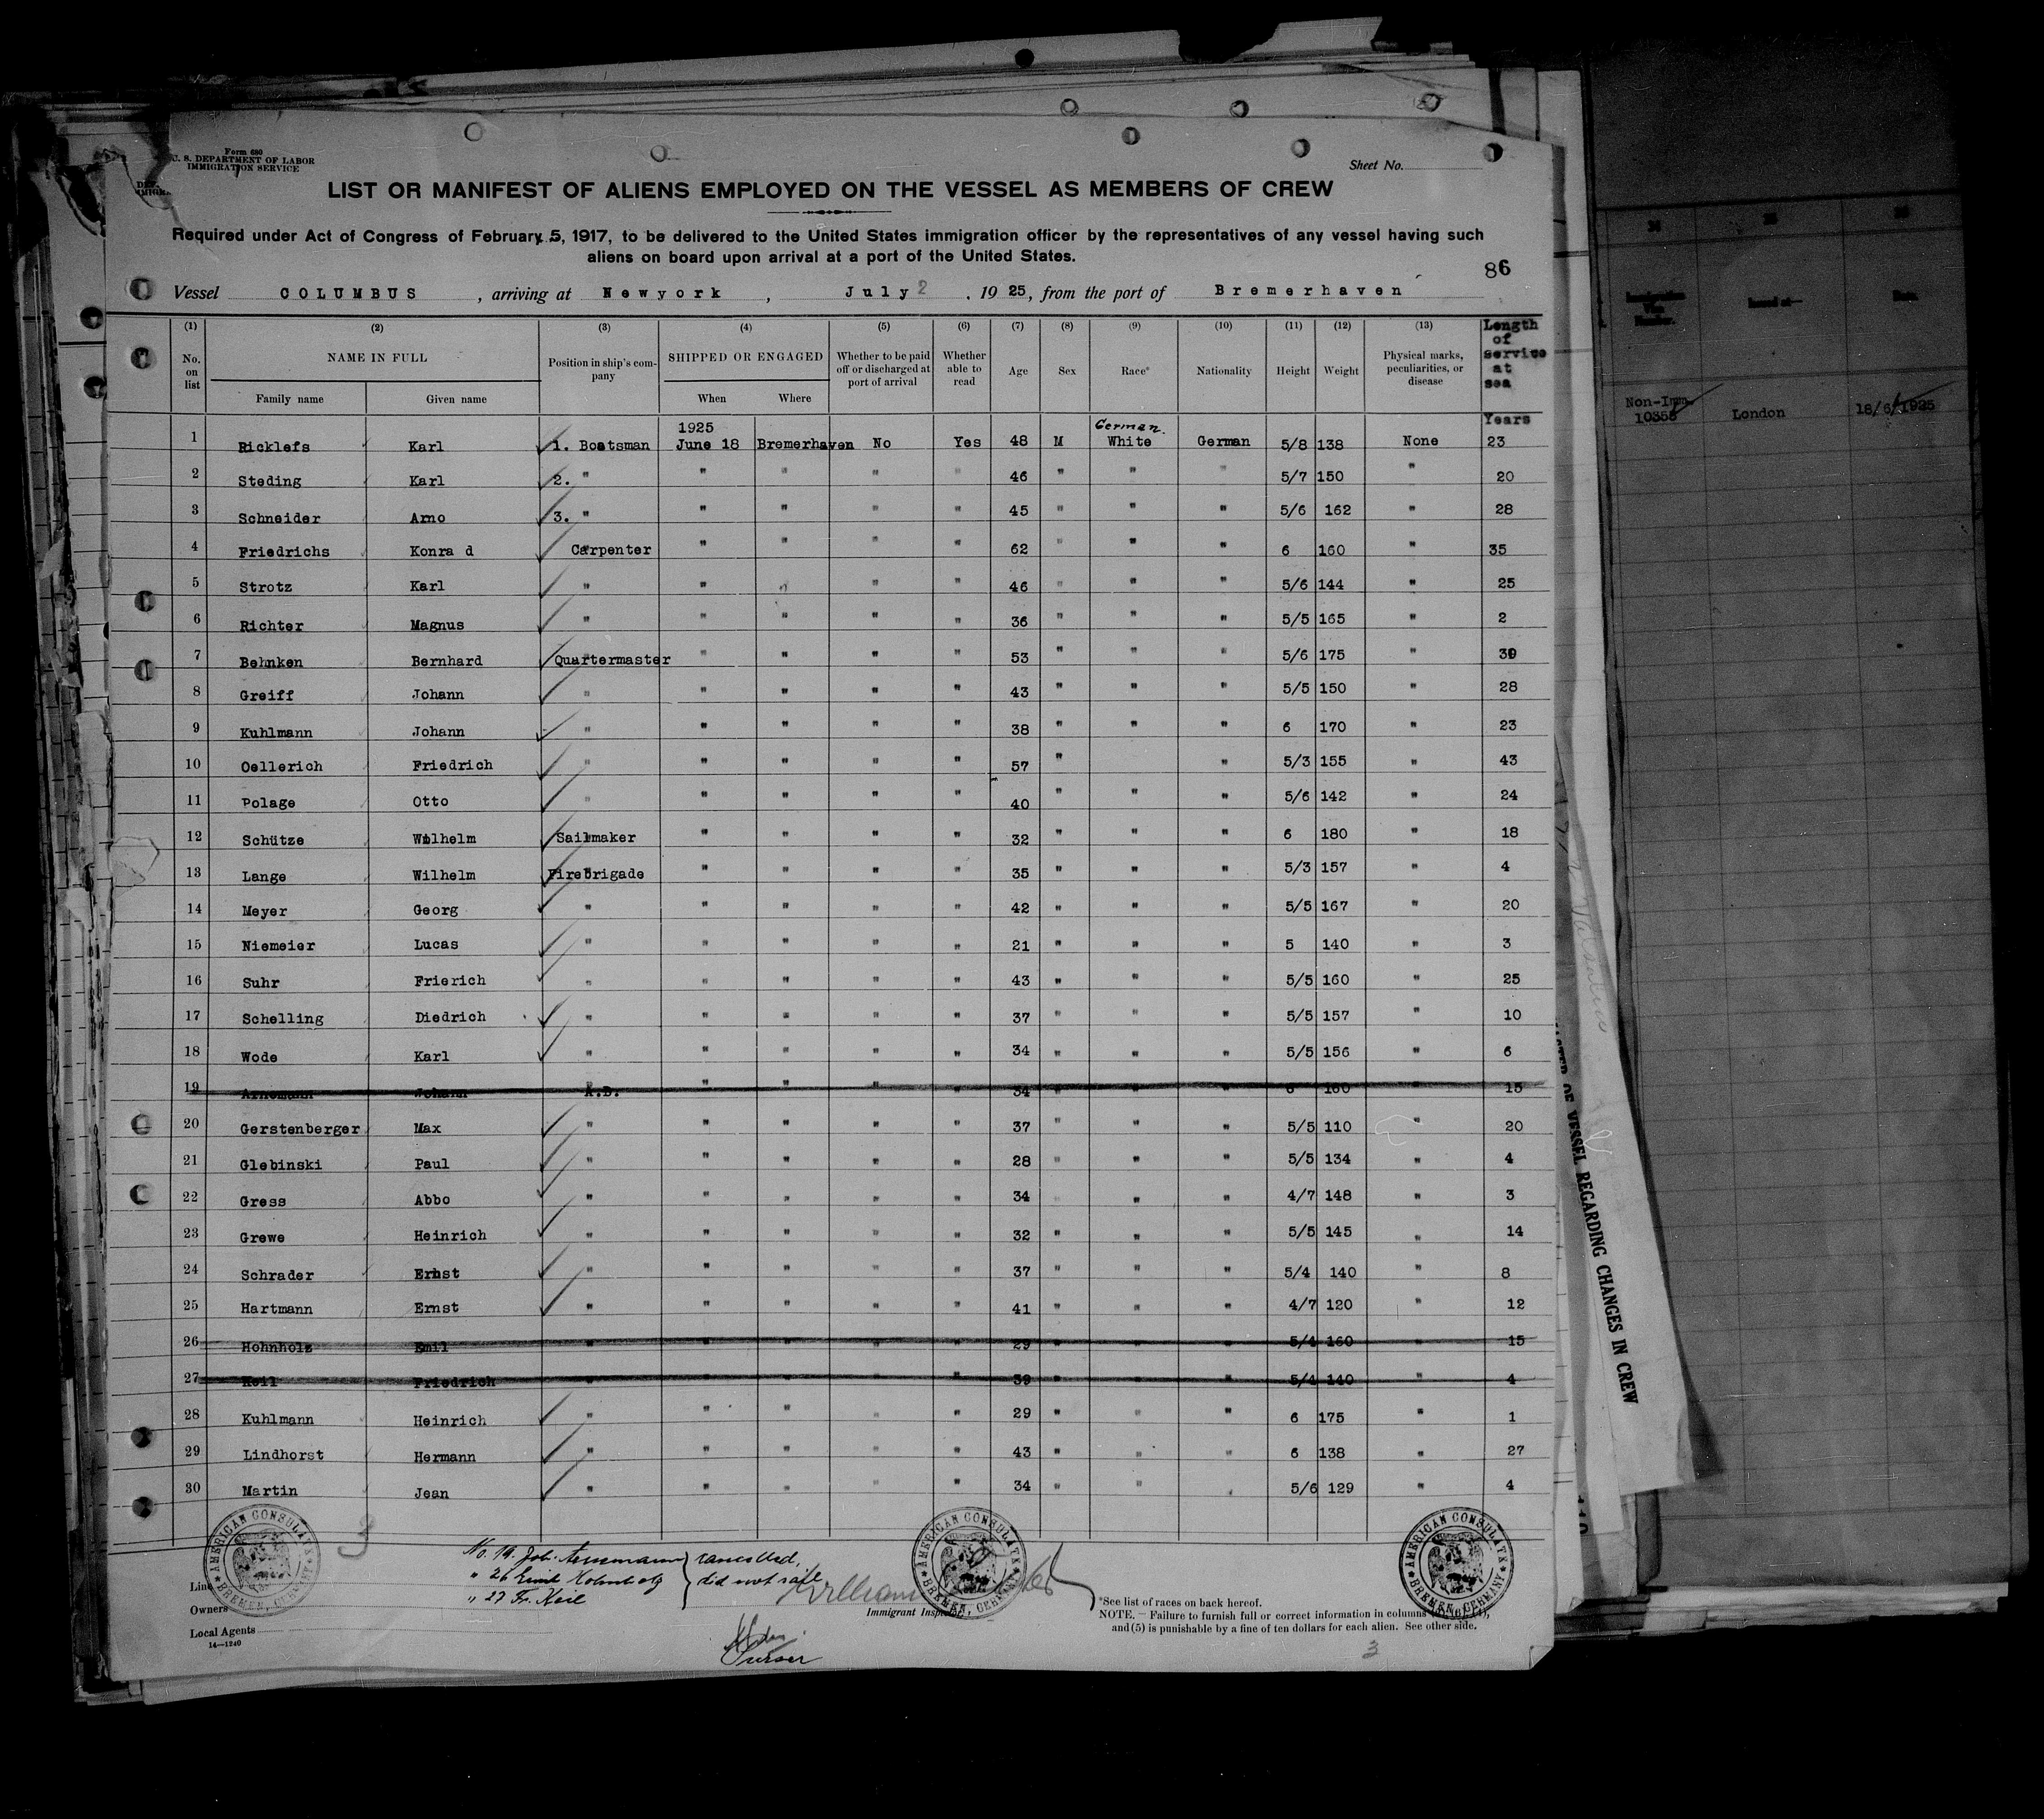 Form 680
U. S. DEPARTMENT OF LABOR
IMMIGRATION SERVICE
Sheet No.
LIST OR MANIFEST OF ALIENS EMPLOYED ON THE VESSEL AS MEMBERS OF CREW
Required under Act of Congress of February 5, 1917, to be delivered to the United States immigration officer by the representatives of any vessel having such
aliens on board upon arrival at a port of the United States.
86
Vessel COLUMBUS , arriving at Newyork , July 2 , 1925, from the port of Bremerhaven
(1) (2) (3) (4) (5) (6) (7) (8) (9) (10) (11) (12) (13) Length of service at sea
No. on list NAME IN FULL Position in ship's company SHIPPED OR ENGAGED Whether to be paid off or discharged at port of arrival Whether able to read Age Sex Race* Nationality Height Weight Physical marks, peculiarities, or disease
Family name Given name When Where
1925 German. Years
1 Ricklefs Karl 1. Boatsman June 18 Bremerhaven No Yes 48 M White German 5/8 138 None 23
2 Steding Karl 2. " " " " " 46 " " " 5/7 150 " 20
3 Schneider Arno 3. " " " " " 45 " " " 5/6 162 " 28
4 Friedrichs Konra d Carpenter " " " " 62 " " " 6 160 " 35
5 Strotz Karl " " " " " 46 " " " 5/6 144 " 25
6 Richter Magnus " " " " " 36 " " " 5/5 165 " 2
7 Behnken Bernhard Quartermaster " " " " 53 " " " 5/6 175 " 39
8 Greiff Johann " " " " " 43 " " " 5/5 150 " 28
9 Kuhlmann Johann " " " " " 38 " " " 6 170 " 23
10 Oellerich Friedrich " " " " " 57 " " 5/3 155 " 43
11 Polage Otto " " " " " 40 " " " 5/6 142 " 24
12 Schütze Wilhelm Sailmaker " " " " 32 " " " 6 180 " 18
13 Lange Wilhelm Firebrigade " " " " 35 " " " 5/3 157 " 4
14 Meyer Georg " " " " " 42 " " " 5/5 167 " 20
15 Niemeier Lucas " " " " " 21 " " " 5 140 " 3
16 Suhr Frierich " " " " " 43 " " " 5/5 160 " 25
17 Schelling Diedrich " " " " " 37 " " " 5/5 157 " 10
18 Wode Karl " " " " " 34 " " " 5/5 156 " 6
19 Arnemann Johann A.B. " " " " 34 " " " 6 160 " 15
20 Gerstenberger Max " " " " " 37 " " " 5/5 110 " 20
21 Glebinski Paul " " " " " 28 " " " 5/5 134 " 4
22 Gress Abbo " " " " " 34 " " " 4/7 148 " 3
23 Grewe Heinrich " " " " " 32 " " " 5/5 145 " 14
24 Schrader Ernst " " " " " 37 " " " 5/4 140 " 8
25 Hartmann Ernst " " " " " 41 " " " 4/7 120 " 12
26 Hohnholz Emil " " " " " 29 " " " 5/4 160 " 15
27 Keil Friedrich " " " " " 39 " " " 5/4 140 " 4
28 Kuhlmann Heinrich " " " " " 29 " " " 6 175 " 1
29 Lindhorst Hermann " " " " " 43 " " " 6 138 " 27
30 Martin Jean " " " " " 34 " " " 5/6 129 " 4
3
No. 19. Joh. Arnemann } cancelled,
" 26 Emil Hohnholz } did not sail
" 27 Fr. Keil
Line
Owners
Local Agents
14—1240
Purser
Immigrant Inspector
AMERICAN CONSULATE BREMEN, GERMANY
AMERICAN CONSULATE BREMEN, GERMANY
AMERICAN CONSULATE BREMEN, GERMANY
*See list of races on back hereof.
NOTE. — Failure to furnish full or correct information in columns
and (5) is punishable by a fine of ten dollars for each alien. See other side.
3
OF VESSEL REGARDING CHANGES IN CREW
Non-Imm. 10353 London 18/6/1925